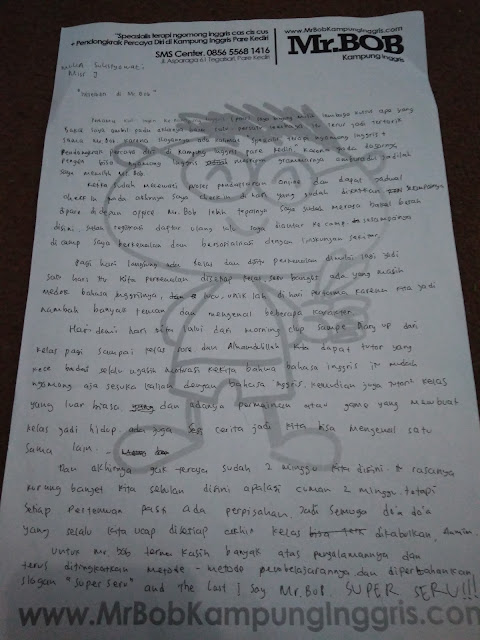 "Spesialis terapi ngomong inggris cas cis cus
+ Pendongkrak Percaya Diri di Kampung Inggris Pare Kediri
SMS Center. 0856 5568 1416
Jl. Asparaga 61 Tegalsari, Pare Kediri
www.MrBobKampungInggris.com
Mr.BOB
Kampung Inggris
Miss J
di Mr. Bob"
Pertama kali
saya ambil pada akhirnya
sama Mr. Bob karena slogannya spesialis terapi ngomong inggris +
Pendongkrak percaya diri di kampung inggris pare kediri karena pada dasarnya
pengen bisa ngomong inggris meskipun grammarnya amburadul jadilah
saya memilih Mr. Bob.
Ketika sudah melewati proses pendaftaran online dan dapat jadwal
check in pada akhirnya saya check in di hari yang sudah ditentukan
di pare di depan office Mr. Bob lebih tepatnya saya sudah merasa bakal betah
disini, selesai registrasi daftar ulang lalu saya diantar ke camp sesampainya
di camp saya berkenalan dan bersosialisasi dengan lingkungan sekitar.
Pagi hari langsung ada kelas dan disitu perkenalan dimulai lagi jadi
satu hari itu kita perkenalan disetiap kelas seru banget ada yang masih
medok bahasa inggrisnya, unik lah di hari pertama karena kita jadi
nambah banyak teman dan mengenal beberapa karakter.
Hari demi hari kita lalui dari morning clup sampe Diary up dari
kelas pagi sampai kelas sore dan Alhamdulillah kita dapat tutor yang
kece badai selalu ngasih motivasi ke kita bahwa bahasa inggris itu mudah
ngomong aja sesuka kalian dengan bahasa inggris. kemudian juga kelas
yang luar biasa dan adanya permainan atau game yang membuat
kelas jadi hidup ada juga cerita jadi kita bisa mengenal satu
sama lain.
Dan akhirnya gak terasa sudah 2 minggu kita disini & rasanya
kurang banget kita sebulan disini apalagi cuman 2 minggu. tetapi
setiap pertemuan pasti ada perpisahan. Jadi semoga do'a do'a
yang selalu kita ucap disetiap akhir kelas dikabulkan, Aamiin.
Untuk Mr. bob terima kasih banyak atas pengalamannya dan
terus ditingkatkan metode - metode pembelajarannya dan dipertahankan
slogan "super seru" and the last I say Mr. Bob. SUPER SERU!!!
www.MrBobKampungInggris.com